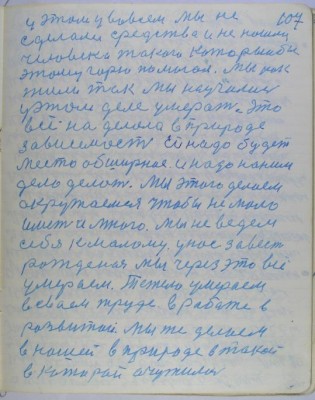 607
и этому вовсем мы не
сделали средства и не нашли
человека такого которы абы
этому горю помогал. Мы как
жили так мы научились
у этом деле умерат. Это
всё на делола в природе
зависимость Ей надо будет
место обширное и надо на ним
дело делат. Мы этого делаем
окружаемся чтобы не мало
имет а много. Мы не ведем
себя к малому, у нас завист
рождения мы через это всё
умераем. Тежело умераем
в своем труде в работе в
розвитой. Мы же делаем
в нашей в природе в такой
в которай очутилис